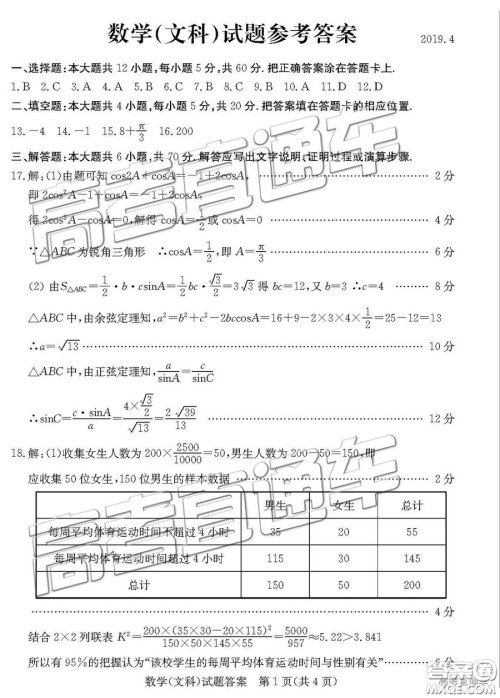 数学(文科)试题参考答案
2019.4
一、选择题:本大题共 12 小题,每小题 5 分,共 60 分.把正确答案涂在答题卡上.
1.B 2.C 3.A 4.A 5.D 6.C 7.B 8.C 9.B 10.A 11.D 12.D
二、填空题:本大题共 4 小题,每小题 5 分,共 20 分.把答案填在答题卡的相应位置.
13.-4 14.-1 15.8+π/3 16.200
三、解答题:本大题共 6 小题,共 70 分.解答应写出文字说明、证明过程或演算步骤.
17.解:(1)由题可知 cos2A+cosA=-1+2cosA, ……… 2 分
即 2cos²A-1+cosA=-1+2cosA,
得 2cos²A-cosA=0,解得 cosA=1/2或 cosA=0 ……… 4 分
∵△ABC 为锐角三角形 ∴cosA=1/2,即 A=π/3 ……… 6 分
(2) 由S△ABC=1/2·b·csinA=1/2bc·√3/2=3√3 得 bc=12,又 b=3 ∴c=4 ……… 8 分
△ABC 中,由余弦定理知,a²=b²+c²-2bccosA=16+9-2×3×4×1/2=25-12=13
∴a=√13 ……… 10 分
△ABC 中,由正弦定理知,a/sinA=c/sinC
∴sinC=c·sinA/a=4×√3/2/√13=2√39/13 ……… 12 分
18.解:(1)收集女生人数为 200×2500/10000=50,男生人数为 200-50=150,即
应收集 50 位女生,150 位男生的样本数据 ……… 2 分
男生 女生 总计
每周平均体育运动时间不超过 4 小时 35 20 55
每周平均体育运动时间超过 4 小时 115 30 145
总计 150 50 200
……… 4 分
结合 2×2 列联表 K²=200×(35×30-20×115)²/150×50×145×55=5000/957≈5.22>3.841
所以有 95%的把握认为“该校学生的每周平均体育运动时间与性别有关” ……… 6 分
数学(文科)试题答案 第 1 页(共 4 页)
高考直通车
高考直通车